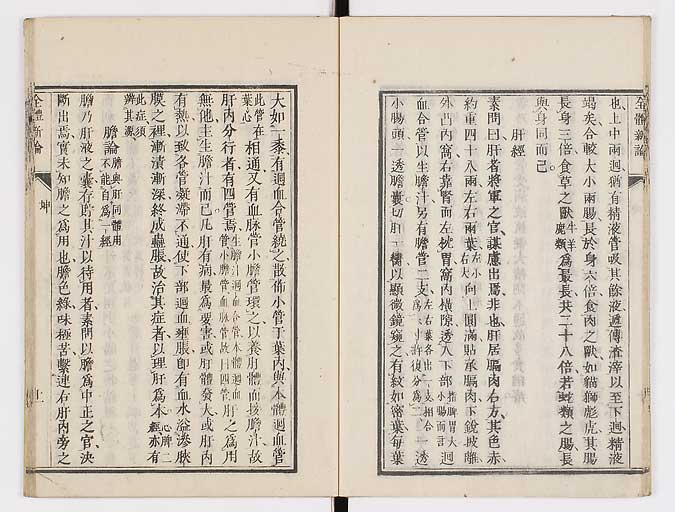 全體新論
也上中兩迴猶有精液管吸其餘液遞傳渣滓以至下迴精液
竭矣合較大小兩腸長於身六倍食肉之獸如貓獅彪虎其腸
長身三倍食草之獸牛羊鹿類為最長共二十八倍若蛇類之腸長
與身同而已
肝經
素問曰肝者將軍之官謀慮出焉非也肝居膈肉右方其色赤
約重四十八兩左右兩葉左小右大向上圓滿貼承膈肉下銳破離
外凸內窩右靠腎而左枕胃窩內橫隙透入下部指脾胃大小腸而言迴
血合管以生膽汁另有膽管二支左右葉各出一支相合為一寸許復分為二一透
小腸頭一透膽囊切肝一橢以顯微鏡窺之有紋如密葉每葉
大如一黍有迴血合管繞之散佈小管于葉內與本體迴血管
此管在葉心相通又有血脉管小膽管環之以養肝體而接膽汁故
肝內分行者有四管焉生膽汁迴血合管本體迴血管小膽管血脉管故曰四管肝之為用
無他主生膽汁而已凡肝有病最為要害或肝體發大或肝內
有熱以致各管凝滯不通使下部迴血壅脹即有血水溢滲胅
膜之裡漸漬漸深終成蠱脹故治其症者以理肝為本心脾二經亦有此症須辨其源
膽論膽與肝同體用不能自為一經
膽乃肝液之囊存貯其汁以待用者素問以膽為中正之官決
斷出焉實未知膽之為用也膽色綠味極苦繫連右肝內旁之
全體新論
坤